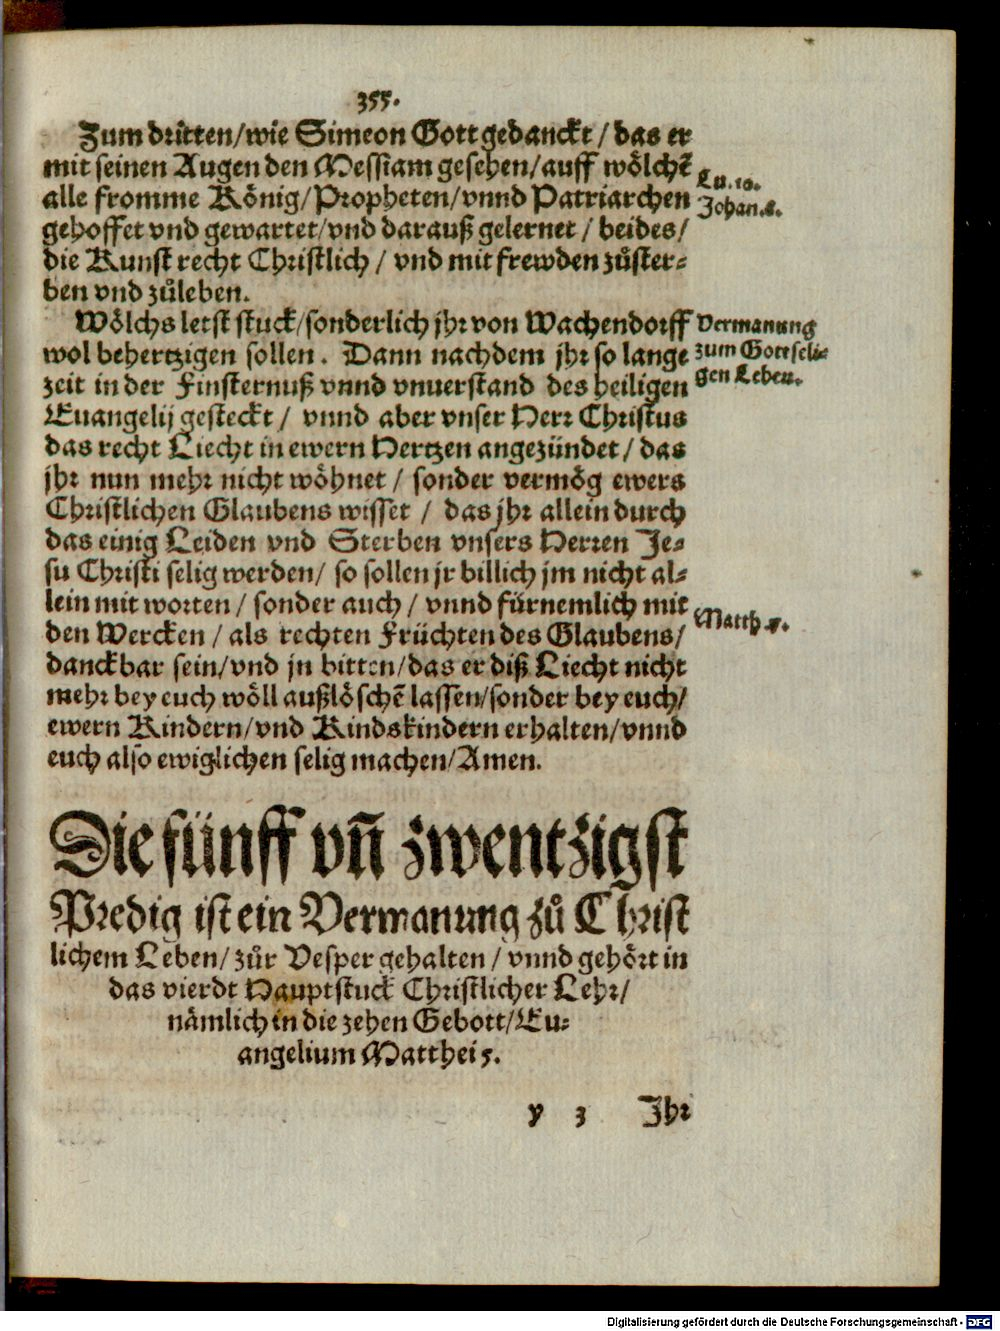 355.
Zum dritten/wie Simeon Gott gedanckt/das er
mit seinen Augen den Messiam gesehen/auff wölchē
Lu. 10.
alle fromme König/Propheten/vnnd Patriarchen
Johan. 8.
gehoffet vnd gewartet/vnd darauß gelernet/beides/
die Kunst recht Christlich/vnd mit frewden zůster-
ben vnd zůleben.
Wölchs letst stuck/sonderlich jhr von Wachendorff
Vermanung
wol behertzigen sollen. Dann nachdem jhr so lange
zum Gottseli-
zeit in der Finsternuß vnnd vnuerstand des heiligen
gen Leben.
Euangelij gesteckt/ vnnd aber vnser Herr Christus
das recht Liecht in ewern Hertzen angezündet/das
jhr nun mehr nicht wöhnet/ sonder vermög ewers
Christlichen Glaubens wisset/ das jhr allein durch
das einig Leiden vnd Sterben vnsers Herren Je-
su Christi selig werden/ so sollen jr billich jm nicht al-
lein mit worten/ sonder auch/ vnnd fürnemlich mit
Matth. 5.
den Wercken/als rechten Früchten des Glaubens/
danckbar sein/vnd jn bitten/das er diß Liecht nicht
mehr bey euch wöll außlöschē lassen/sonder bey euch/
ewern Kindern/vnd Kindskindern erhalten/vnnd
euch also ewiglichen selig machen/Amen.
Die fünff vñ zwentzigst
Predig ist ein Vermanung zů Christ
lichem Leben/zůr Vesper gehalten/vnnd gehört in
das vierdt Hauptstuck Christlicher Lehr/
nämlich in die zehen Gebott/Eu-
angelium Matthei 5.
y 3 Jhr
Digitalisierung gefördert durch die Deutsche Forschungsgemeinschaft - DFG